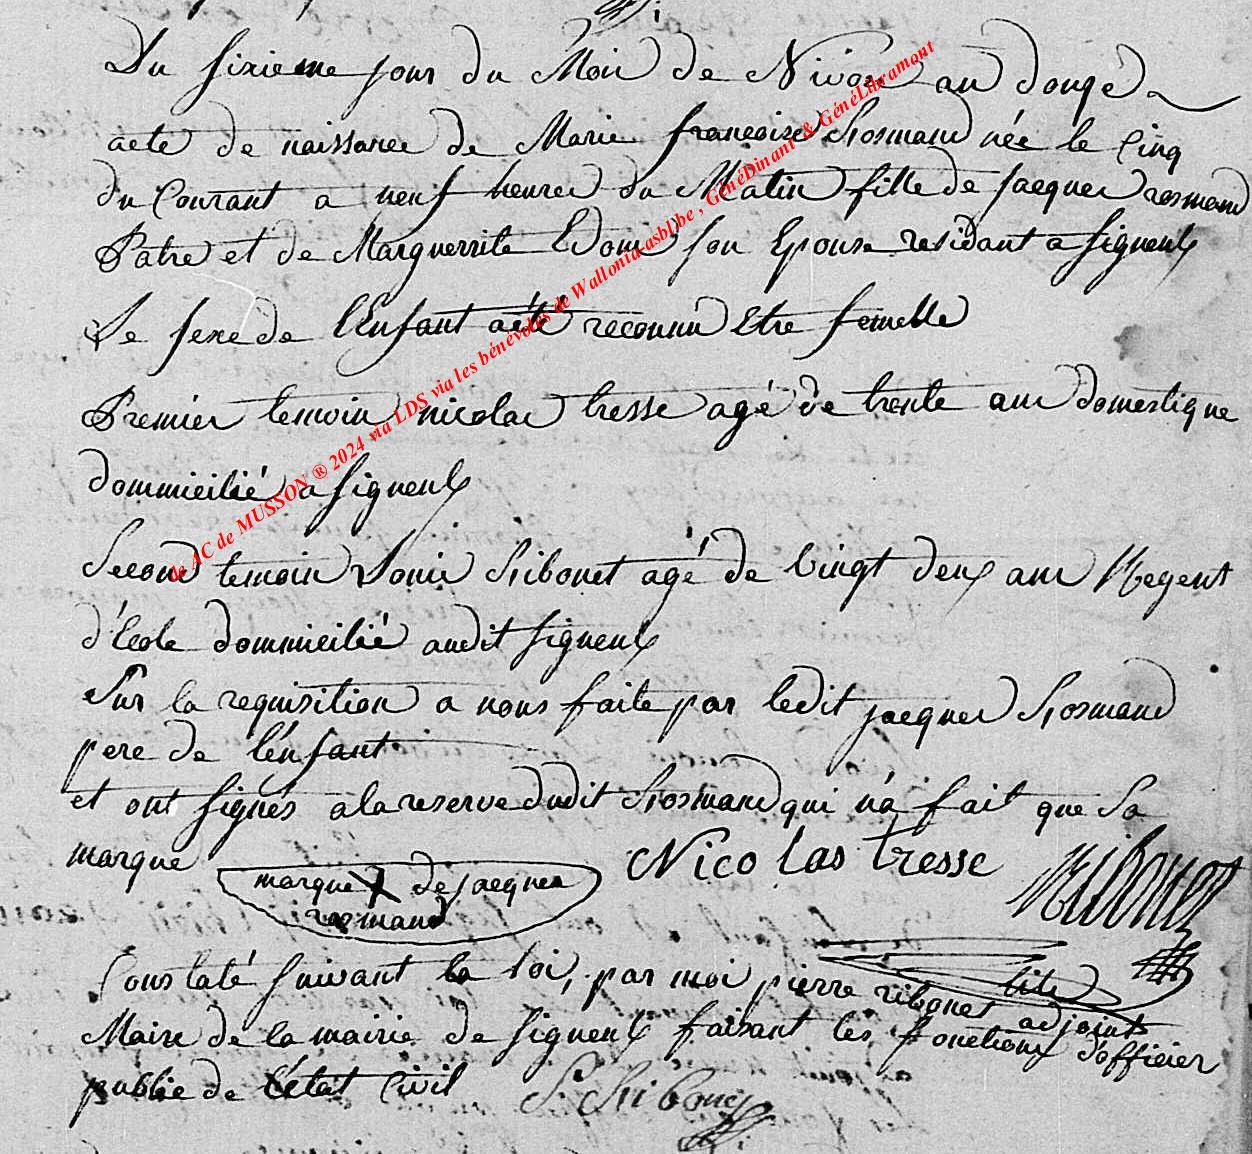 Du sixieme jour du Mois de Nivose an douze
acte de naissance de Marie françoise Rosmand née le Cinq
du Courant a neuf heures du Matin fille de jacques rosmand
Patre et de Marguerrite son Epouse residant a signeulx
Le sexe de l'Enfant a été reconnu Etre femelle
Premier temoin nicolas tresse agé de trente ans domestique
dommicilié a signeulx
Second temoin Louis Ribonet agé de vingt deux ans Regent
d'Ecole dommicilié audit signeulx
Sur la requisition a nous faite par ledit jacques Rosmand
pere de l'enfant
et ont signés a la reserve dudit Rosmand qui n'a fait que sa
marque
marque X de jacques
rosmand
Nicolas tresse
Ribonet
Constaté suivant la loi, par moi pierre ribonet adjoint
Maire de la mairie de signeulx faisant les fonctions d'officier
public de l'état Civil
P. Ribonet
de AC de MUSSON ® 2024 via LDS via les bénévoles de Wallonia-asbl.be , GénéDinant & GénéLibramont